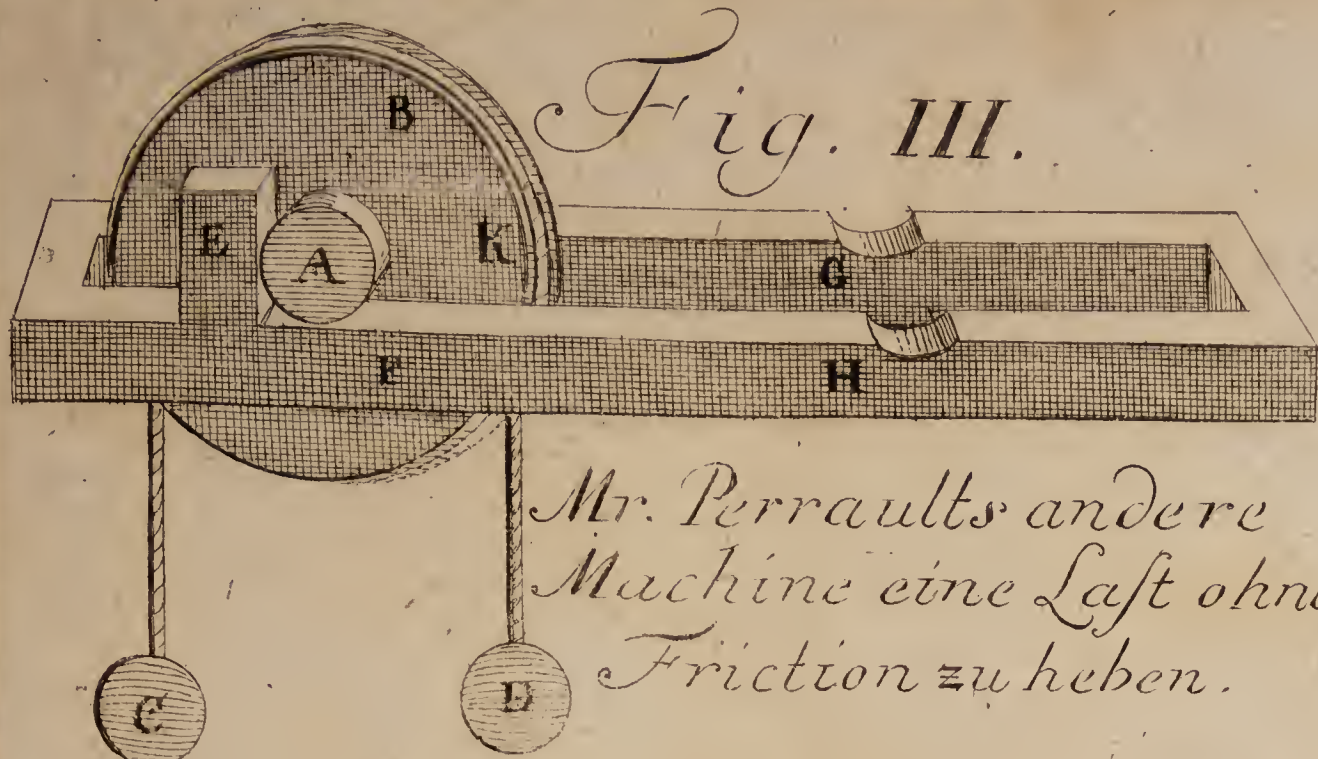 Fig. III.
B
E
A
K
G
F
H
Mr. Perraults andere
Machine eine Laſt ohne
Friction zu heben.
C
D